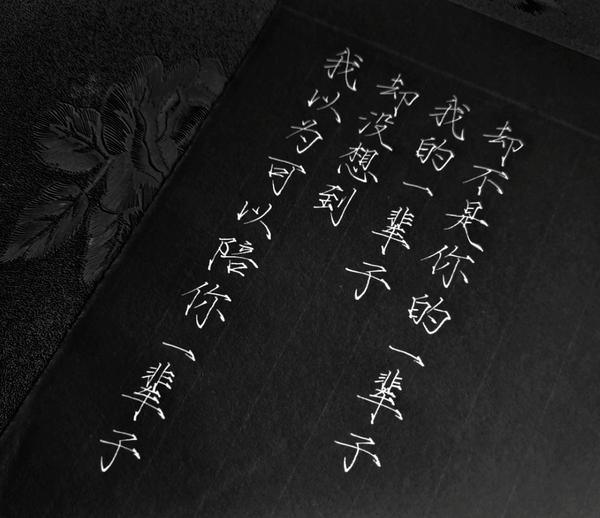 我以为可以陪你一辈子
却没想到
我的一辈子
却不是你的一辈子